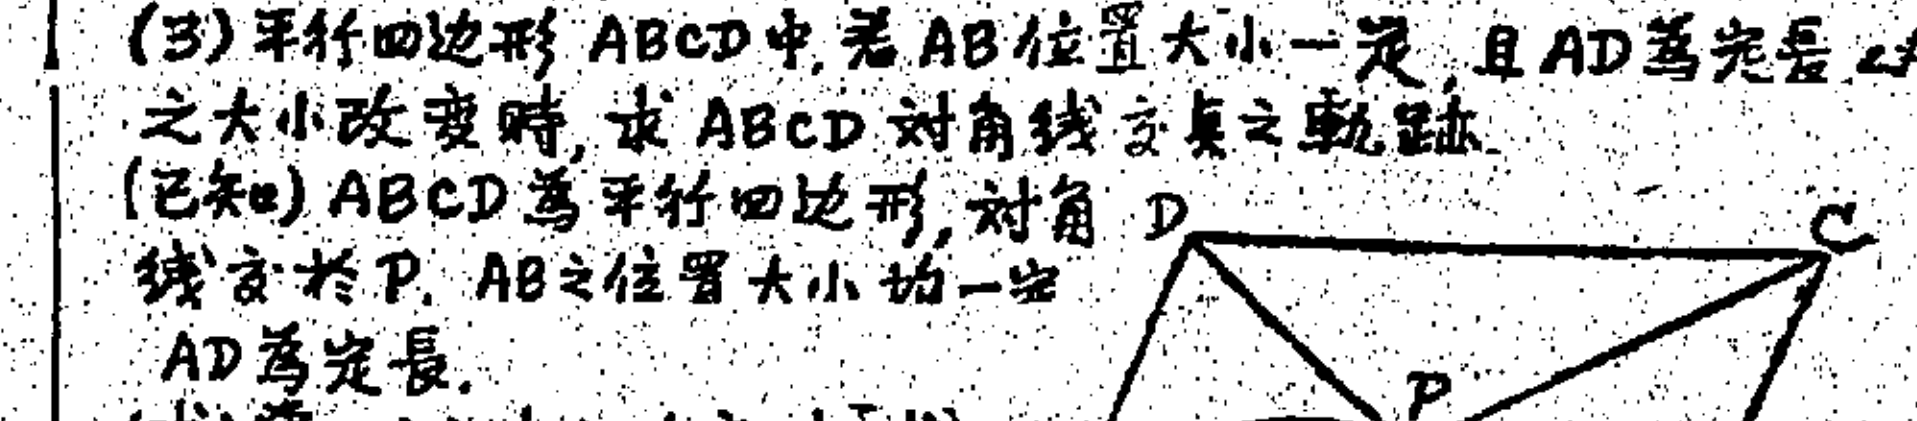 (3) 平行四边形 ABCD 中, 若 AB 位置大小一定, 且 AD 為定長
之大小改变時, 求 ABCD 对角线交点之軌跡.
(已知) ABCD 為平行四边形, 对角
线交於 P. AB 之位置大小均一定
AD 為定長.
D
C
P